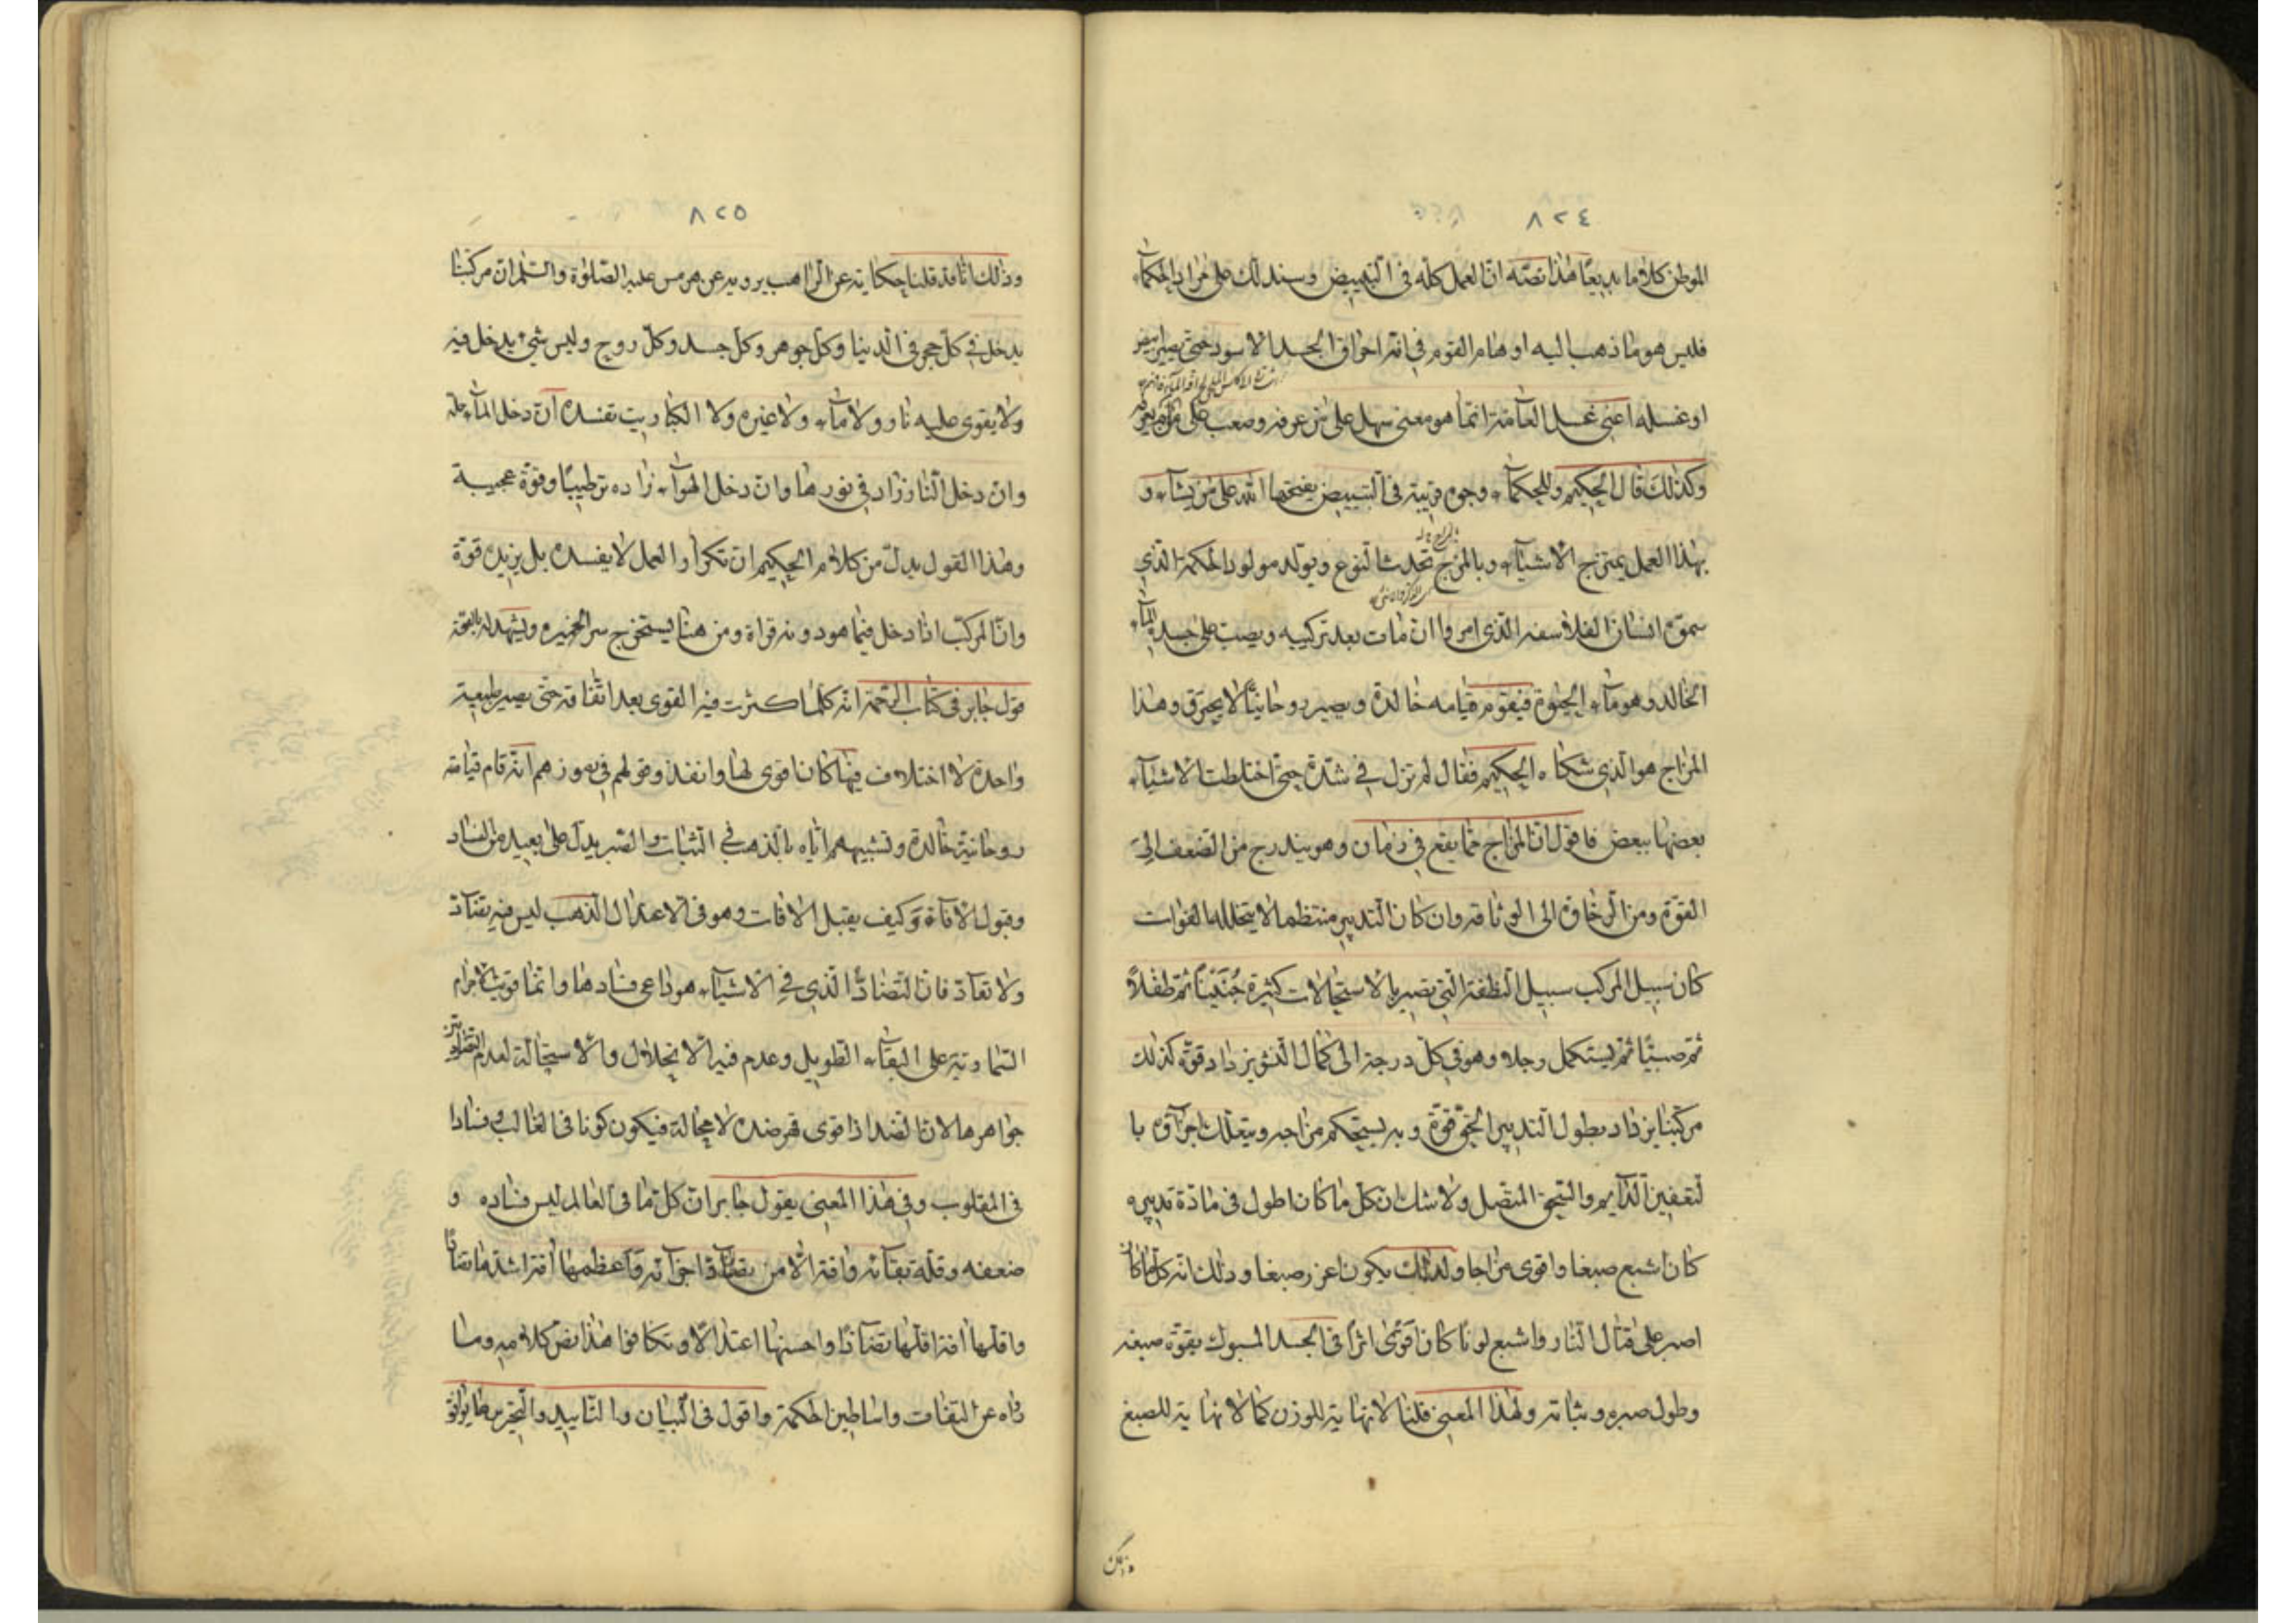 ٨٢٤
الموطن كلاما بديعًا هذا نصّه انّ العمل كلّه فى التبييض وسندلّك على مراد الحكمآء
فليس هو ما ذهب اليه اوهام القوم فى انّه احراق الجسد الاسود حتى يصير ابيض
او غسله اعنى غسل العآمّة انّما هو معنى سهل على من عرفه وصعب على من لم يعرفه
وكذلك قال الحكيم وللحكمآء وجوه قريبة فى التبييض يفتحها الله على من يشآء و
بهذا العمل يمتزج الاشيآء وبالمزج تحدث النوع ويولد مولود الحكمة الذي
سموّه انسان الفلاسفه الذى امروا ان مات بعد تركيبه ويصبّ على جسده المآء
الخالد وهو مآء الحيٰوة فيقوم قيامه خالدة ويصير روحانيّا لا يحترق وهذا
المزاج هو الّذي شكاه الحكيم فقال لم نزل فى شدّة حتّى اختلطت الاشيآء
بعضها ببعض فاقول انّ المزاج ممّا يقع فى زمان وهو يتدرج من الضعف الى
القوّة ومن الرخاوة الى الوثاقه وان كان التدبير منتظما لا يتخلله الفوات
كان سبيل المركب سبيل النطفة الّتى تصير بالاستحالات كثيرة جنينًا ثمّ طفلاً
ثمّ صبيّا ثمّ يستكمل رجلا وهو فى كلّ درجة الى كمال النشو يزداد قوّة كذلك
مركّبنا يزداد بطول التدبير الحقّ قوّة وبه يستحكم مزاجه ويتعلّك اجزآؤه با
لتعفين الدّآيم والسّحق المتّصل ولا شك ان كل ما كان اطول فى مادّة تدبيره
كان اشبع صبغا واقوى مزاجا ولذلك يكون اغزر صبغا وذلك انّه كل ما كان
اصبر على قتال النّار واشبع لونًا كان اقوى اثرًا فى الجسد المسبوك بقوّة صبغه
وطول صبره وثباته ولهذا المعنى قلنا لا نهاية للوزن كما لا نهاية للصبغ
٨٢٥
وذلك انّا قد قلنا حكاية عن الرّاهب يرويه عن هرمس عليه الصّلوٰة والسّلم انّ مركبنا
يدخل فى كلّ حجر فى الدّنيا وكلّ جوهر وكل جسد وكلّ روح وليس شئ يدخل فيه
ولا يقوى عليه نار ولا مآء ولا غيره ولا الكباريت تفسده ان دخل المآء حلّه
وان دخل النّار زاد فى نورها وان دخل الهوآء زاده ترطيبًا وقوّة عجيبة
وهذا القول يدلّ من كلام الحكيم ان تكرار العمل لا يفسده بل يزيده قوّة
وانّ المركّب اذا دخل فيما هو دونه قواه ومن هنا يستخرج سر الخميره ويشهد له بالصّحّة
قول جابر فى كتاب الرّحمة انّه كلّما كثرت فيه القوى بعد اتفاقه حتّى يصير طبيعة
واحدة لا اختلاف فيها كان اقوى لها وانفذ وقولهم فى رموزهم انّه قام قيامة
روحانيّة خالدة وتشبيههم ايّاه بالذهب فى الثبات والصّبر يدلّ على بعيد من الفساد
وقبول الافآة وكيف يقبل الافات وهو فى الاعتدال الذهب ليس فيه تضآدّ
ولا تعآدّ فانّ التّضادّ الّذي فى الاشيآء هو داعى فسادها وانّما قويت الاجرام
السّماويّة على البقآء الطويل وعدم فيه الانحلال والاستحالة لعدم التّضاد بين
جواهرها لانّ الضدّ اذا قوى قهر ضده لا محالة فيكون كونا فى الغالب وفسادا
فى المقلوب وفى هذا المعنى يقول جابر انّ كلّ ما فى العالم ليس فساده و
ضعفه وقلّة بقآئه وافته الّا من تضآدّ اجزآئه واعظمها افة اشدها تضادًّا
واقلّها افة اقلّها تضآدّا واحسنها اعتدالاً وتكافوا هذا نصّ كلامه وما
راه عن الثقات واساطين الحكمة واقول فى البيان والتّاييد والتّجربة ما يوافق